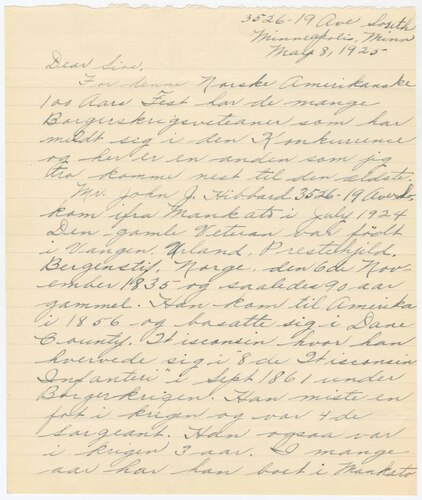 3526-19 Ave South
Minneapolis, Minn
May 8, 1925
Dear Sirs,
For denne Norske Amerikanske
100 Aars Fest har de mange
Borgerskrigsveteaner som har
meldt sig i den Konkurrence
og her er en anden som jeg
tro komme nest til den sidste.
Mr. John J. Hibbard 3526-19 Ave So.
kom ifra Mankato i July 1924
Den gamle Veteran var født
i Vangen, Urland, Prestehjild.
Bergenstif, Norge, den 6 de Nov-
ember 1835 og saaledes 90 aar
gammel. Han kom til Amerika
i 1856 og bosatte sig i Dane
County, Wisconsin hvor han
hvervede sig i "8 de Wisconsin
Infanteri" i Sept 1861 under
Borgerkrigen. Han miste en
fot i krigen og var 4 de
sargeant. Han ogsaa var
i krigen 3 aar. I mange
aar har han boet i Mankato